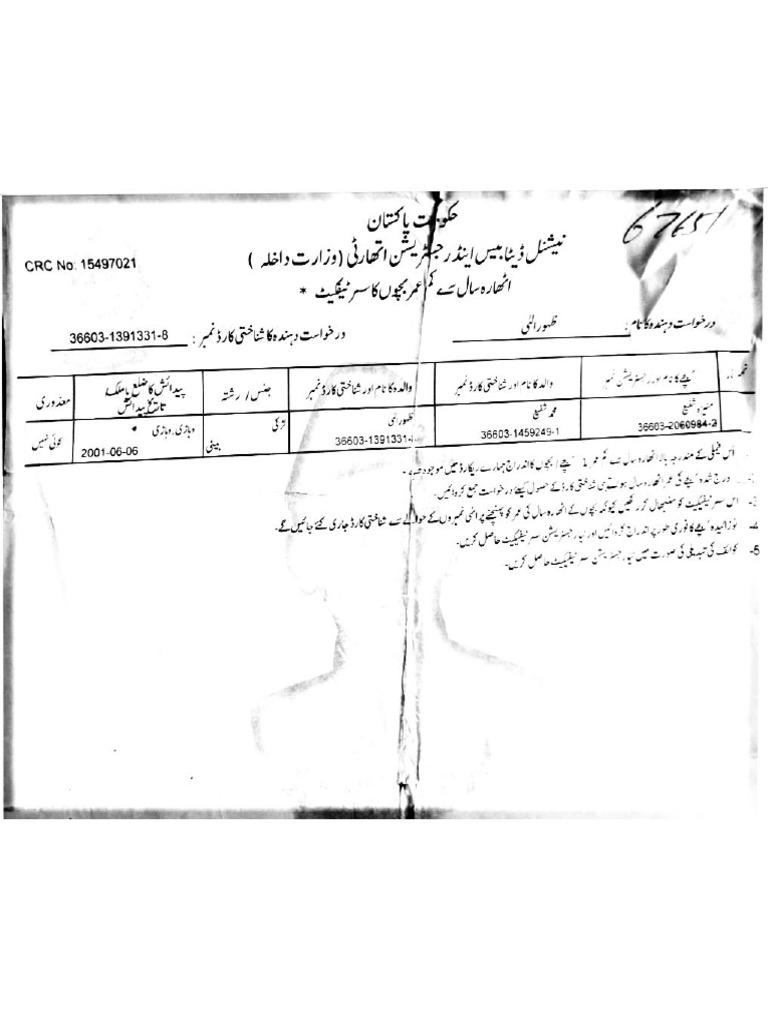 حکومت پاکستان
67651
نیشنل ڈیٹا بیس اینڈ رجسٹریشن اتھارٹی (وزارت داخلہ)
CRC No: 15497021
اٹھارہ سال سے کم عمر بچوں کا سرٹیفکیٹ *
درخواست دہندہ کا نام : ظہور الہٰی درخواست دہندہ کا شناختی کارڈ نمبر : 36603-1391331-8
بچے کا نام اور رجسٹریشن نمبر والد کا نام اور شناختی کارڈ نمبر والدہ کا نام اور شناختی کارڈ نمبر جنس / رشتہ پیدائش کا ضلع یا ملک / تاریخ پیدائش معذوری
منیرہ شفیع 36603-2060984-2 محمد شفیع 36603-1459249-1 36603-1391331 لڑکی بیٹی وہاڑی, وہاڑی * 2001-06-06 کوئی نہیں
اس فیملی کے مندرجہ بالا اٹھارہ سال سے کم عمر 1 بچے / بچوں کا اندراج ہمارے ریکارڈ میں موجود ہے۔
درج شدہ بچے کی عمر اٹھارہ سال ہوتے ہی شناختی کارڈ کے حصول کیلئے درخواست جمع کروائیں۔
3- اس سرٹیفکیٹ کو سنبھال کر رکھیں کیونکہ بچوں کے اٹھارہ سال کی عمر کو پہنچنے پر انہی نمبروں کے حوالے سے شناختی کارڈ جاری کئے جائیں گے۔
4- نوزائیدہ بچے کا فوری طور پر اندراج کروائیں اور نیا رجسٹریشن سرٹیفکیٹ حاصل کریں۔
5- کوائف کی تبدیلی کی صورت میں نیا رجسٹریشن سرٹیفکیٹ حاصل کریں۔